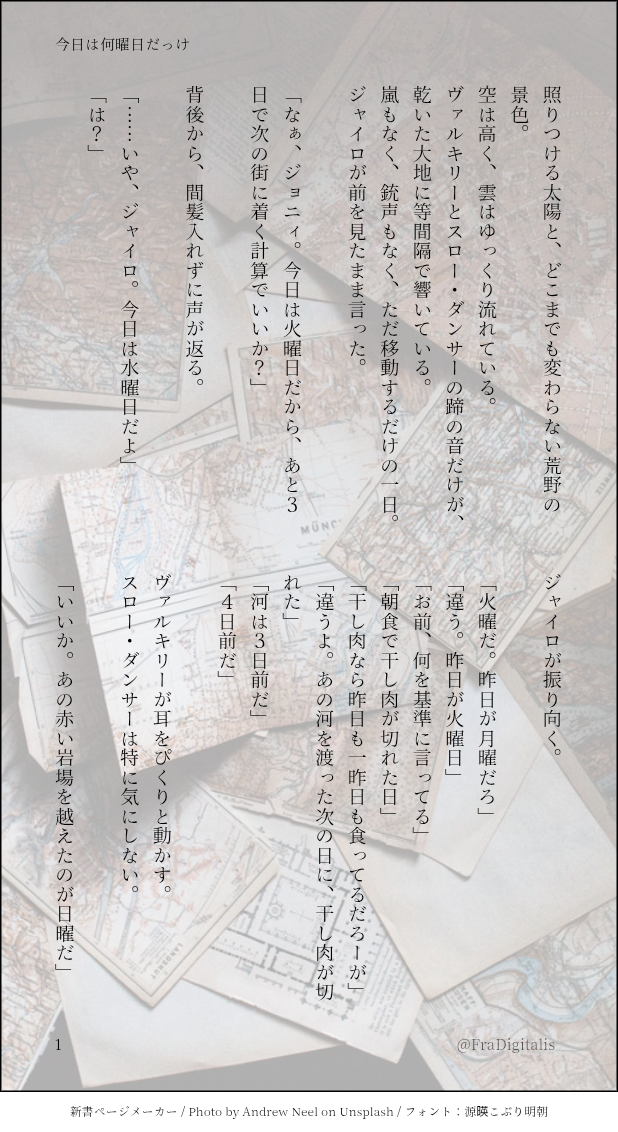 今日は何曜日だっけ
照りつける太陽と、どこまでも変わらない荒野の
景色。
空は高く、雲はゆっくり流れている。
ヴァルキリーとスロー・ダンサーの蹄の音だけが、
乾いた大地に等間隔で響いている。
嵐もなく、銃声もなく、ただ移動するだけの一日。
ジャイロが前を見たまま言った。
「なぁ、ジョニィ。今日は火曜日だから、あと３
日で次の街に着く計算でいいか？」
背後から、間髪入れずに声が返る。
「……いや、ジャイロ。今日は水曜日だよ」
「は？」
ジャイロが振り向く。
「火曜だ。昨日が月曜だろ」
「違う。昨日が火曜日」
「お前、何を基準に言ってる」
「朝食で干し肉が切れた日」
「干し肉なら昨日も一昨日も食ってるだろーが」
「違うよ。あの河を渡った次の日に、干し肉が切
れた」
「河は３日前だ」
「４日前だ」
ヴァルキリーが耳をぴくりと動かす。
スロー・ダンサーは特に気にしない。
「いいか。あの赤い岩場を越えたのが日曜だ」
1
@FraDigitalis
MÜNC
LANDKRET
新書ページメーカー / Photo by Andrew Neel on Unsplash / フォント：源暎こぶり明朝